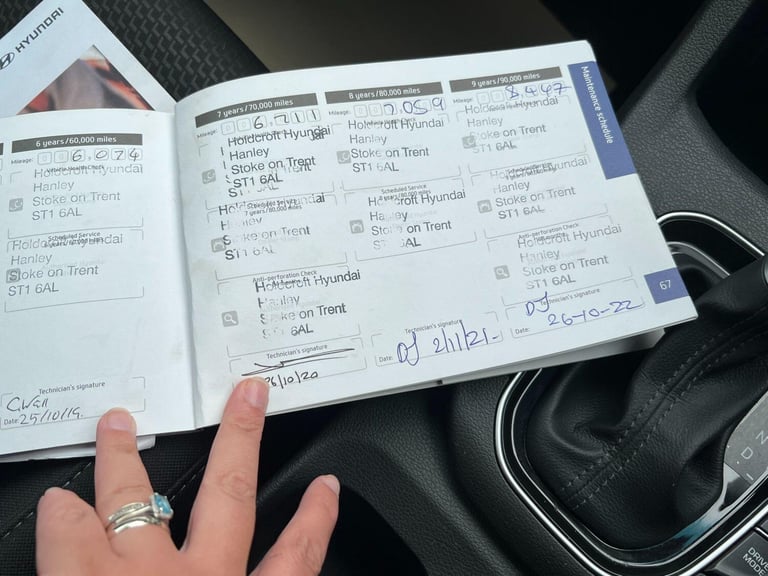 HYUNDAI
6 years/60,000 miles
Mileage: 006,074
Vehicle Health Check
Holdcroft Hyundai
Hanley
Stoke on Trent
ST1 6AL
Scheduled Service
6 years/60,000 miles
Holdcroft Hyundai
Hanley
Stoke on Trent
ST1 6AL
Technician's signature
Date: 25/10/19.
7 years/70,000 miles
Mileage: 006,711
Holdcroft Hyundai
Hanley
Stoke on Trent
ST1 6AL
Scheduled Service
7 years/70,000 miles
Holdcroft Hyundai
Hanley
Stoke on Trent
ST1 6AL
Anti-perforation Check
Holdcroft Hyundai
Hanley
Stoke on Trent
ST1 6AL
Technician's signature
26/10/20
8 years/80,000 miles
Mileage:
Holdcroft Hyundai
Hanley
Stoke on Trent
ST1 6AL
Scheduled Service
8 years/80,000 miles
Holdcroft Hyundai
Hanley
Stoke on Trent
ST1 6AL
Technician's signature
Date: DJ 2/11/21-
9 years/90,000 miles
Mileage: 8447
Holdcroft Hyundai
Hanley
Stoke on Trent
ST1 6AL
Scheduled Service
9 years/90,000 miles
Holdcroft Hyundai
Hanley
Stoke on Trent
ST1 6AL
Anti-perforation Check
Holdcroft Hyundai
Hanley
Stoke on Trent
ST1 6AL
Technician's signature
DJ
Date: 26-10-22
Maintenance schedule
67
N
D
DRIVE
MODE